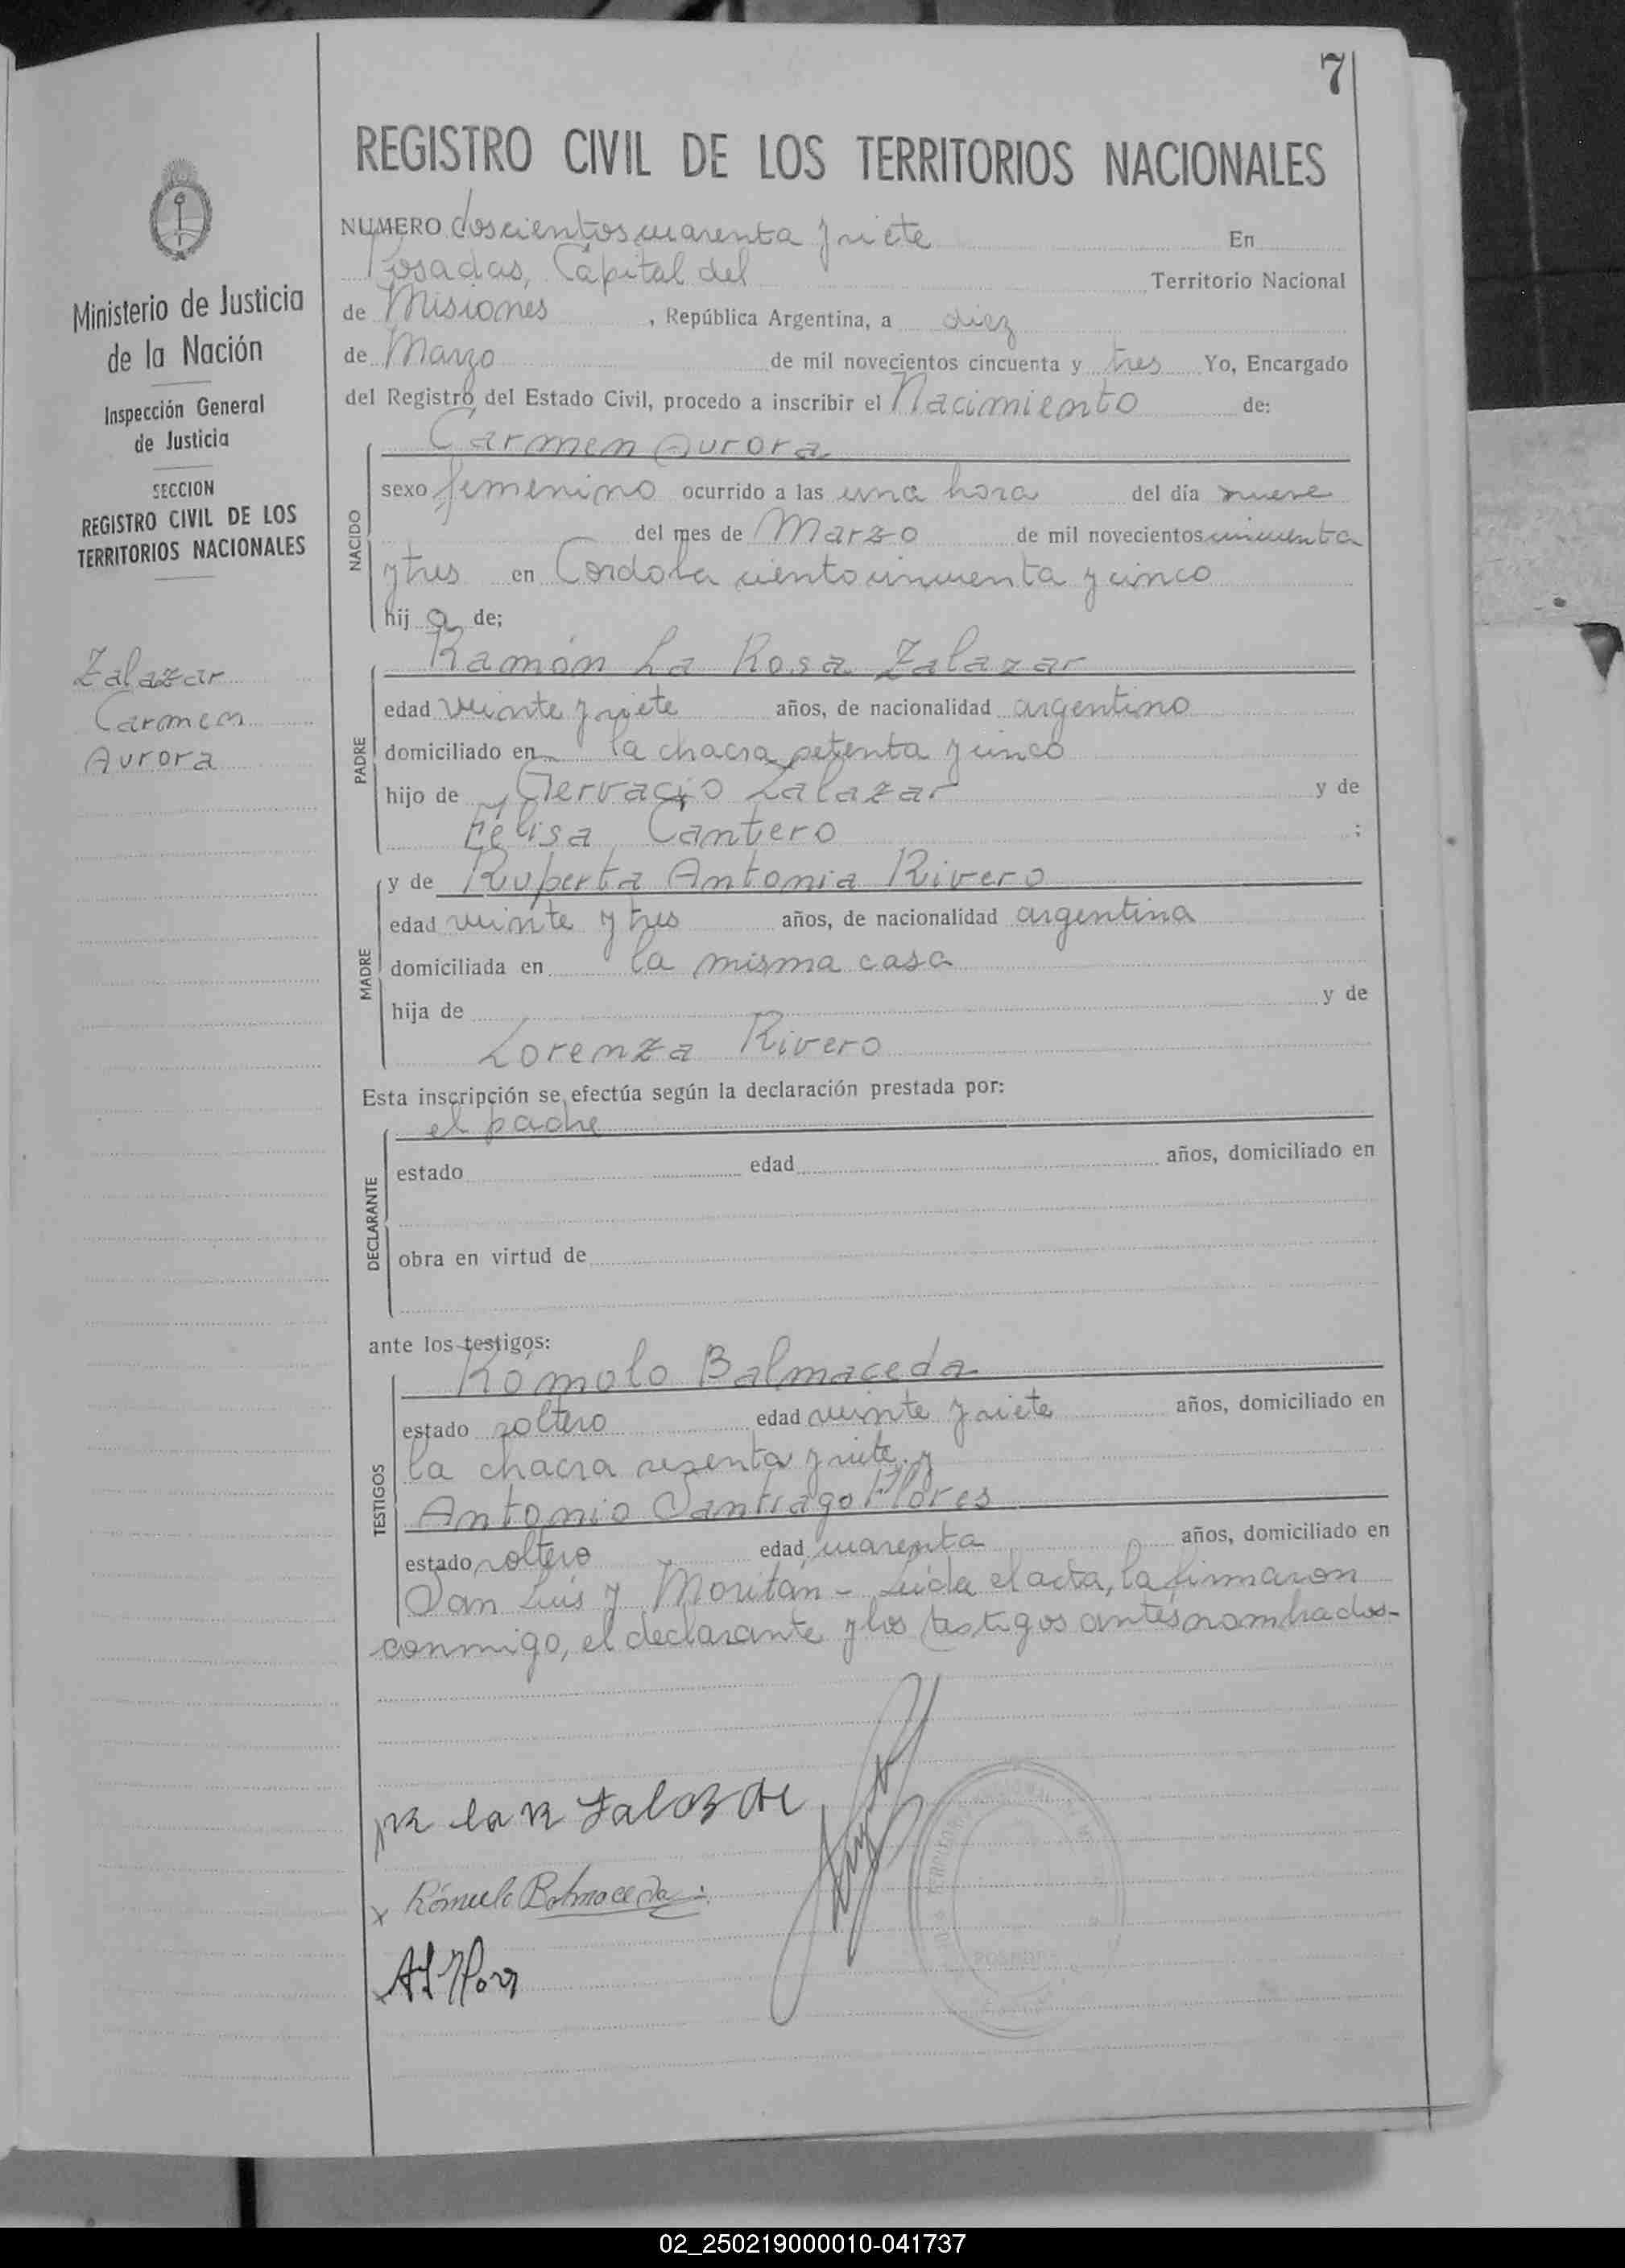 7
REGISTRO CIVIL DE LOS TERRITORIOS NACIONALES
Ministerio de Justicia
de la Nación
Inspección General
de Justicia
SECCION
REGISTRO CIVIL DE LOS
TERRITORIOS NACIONALES
Zalazar
Carmen
Aurora
NUMERO doscientos cuarenta y siete En
Posadas, Capital del Territorio Nacional
de Misiones, República Argentina, a diez
de Marzo de mil novecientos cincuenta y tres Yo, Encargado
del Registro del Estado Civil, procedo a inscribir el Nacimiento de:
NACIDO
Carmen Aurora
sexo femenino ocurrido a las una hora del día nueve
del mes de Marzo de mil novecientos cincuenta
y tres en Cordoba ciento cincuenta y cinco
hija de;
PADRE
Ramón La Rosa Zalazar
edad veinte y siete años, de nacionalidad argentino
domiciliado en la chacra setenta y cinco
hijo de Gervacio Zalazar y de
Felisa Cantero :
MADRE
y de Ruperta Antonia Rivero
edad veinte y tres años, de nacionalidad argentina
domiciliada en la misma casa
hija de y de
Lorenza Rivero
Esta inscripción se efectúa según la declaración prestada por:
DECLARANTE
el padre
estado edad años, domiciliado en
obra en virtud de
ante los testigos:
TESTIGOS
Rómolo Balmaceda
estado soltero edad veinte y siete años, domiciliado en
la chacra sesenta y siete, y
Antonio Santiago Flores
estado soltero edad cuarenta años, domiciliado en
San Luis y Moritán - Leida el acta, la firmaron
conmigo, el declarante y los testigos antes nombrados-
R la R Zalazar
x Rómulo Balmaceda
POSADAS
02_250219000010-041737